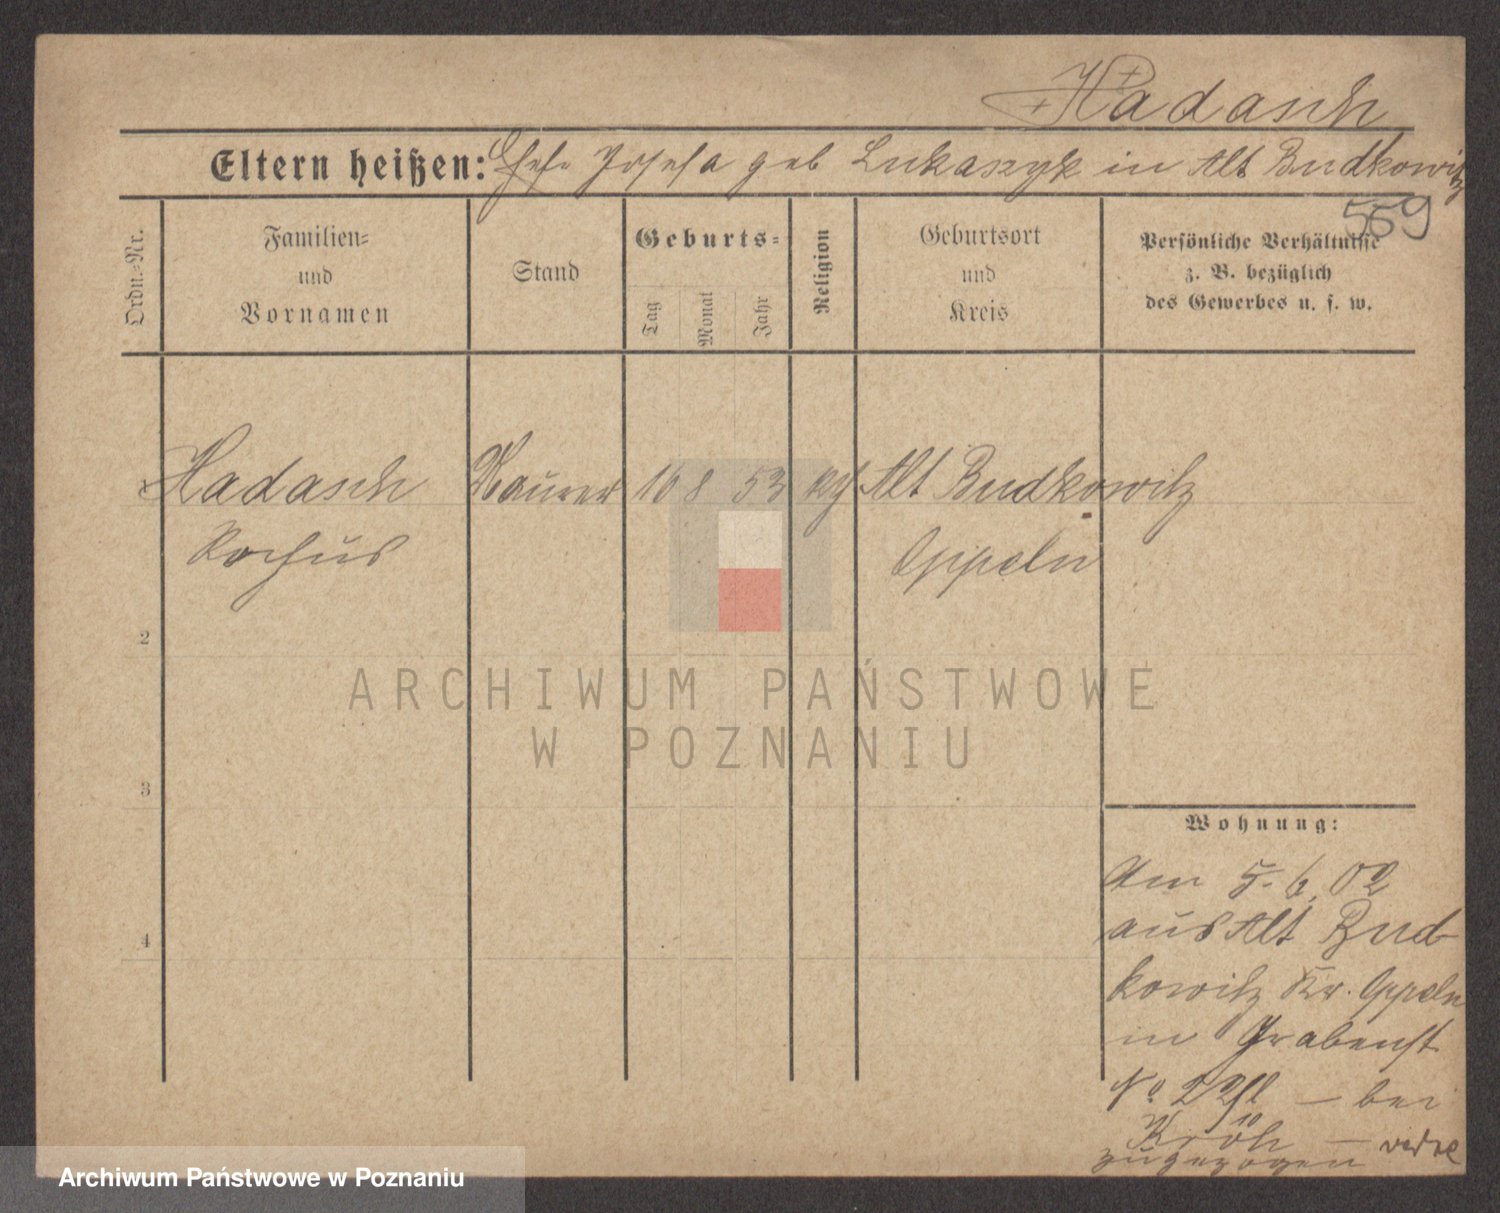 Hadasch
Eltern heißen: Ehefr Josefa geb Lukaszyk in Alt Budkowitz
559
Ordn.=Nr.
Familien=
und
Vornamen
Stand
Geburts=
Tag
Monat
Jahr
Religion
Geburtsort
und
Kreis
Persönliche Verhältnisse
z. B. bezüglich
des Gewerbes u. s. w.
Hadasch Maurer 16 8 53 Alt Budkowitz
Rochus Oppeln
2
3
4
Wohnung:
Am 5. 6. 02
aus Alt Bud-
kowitz Kr. Oppeln
in Grabenst
No 22 — bei
Kroh —
zugezogen
ARCHIWUM PAŃSTWOWE
W POZNANIU
Archiwum Państwowe w Poznaniu